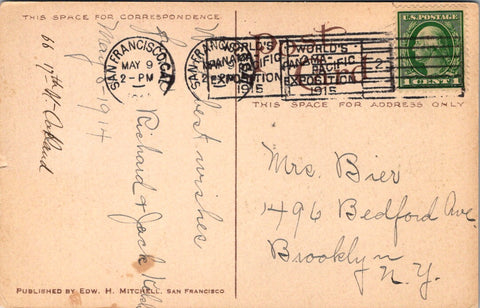 THIS SPACE FOR CORRESPONDENCE.
Post
SAN FRANCISCO, CAL.
MAY 9
2-PM
WORLD'S
PANAMA PACIFIC
EXPOSITION
1915
SAN FRANCISCO, CAL.
WORLD'S
PANAMA PACIFIC
EXPOSITION
1915
2
U.S. POSTAGE
1 CENT 1
THIS SPACE FOR ADDRESS ONLY
66 17th St. Oakland
May 8-1914
best wishes
Richard & Jack
Mrs. Bier
1496 Bedford Ave.
Brooklyn
N.Y.
PUBLISHED BY EDW. H. MITCHELL, SAN FRANCISCO